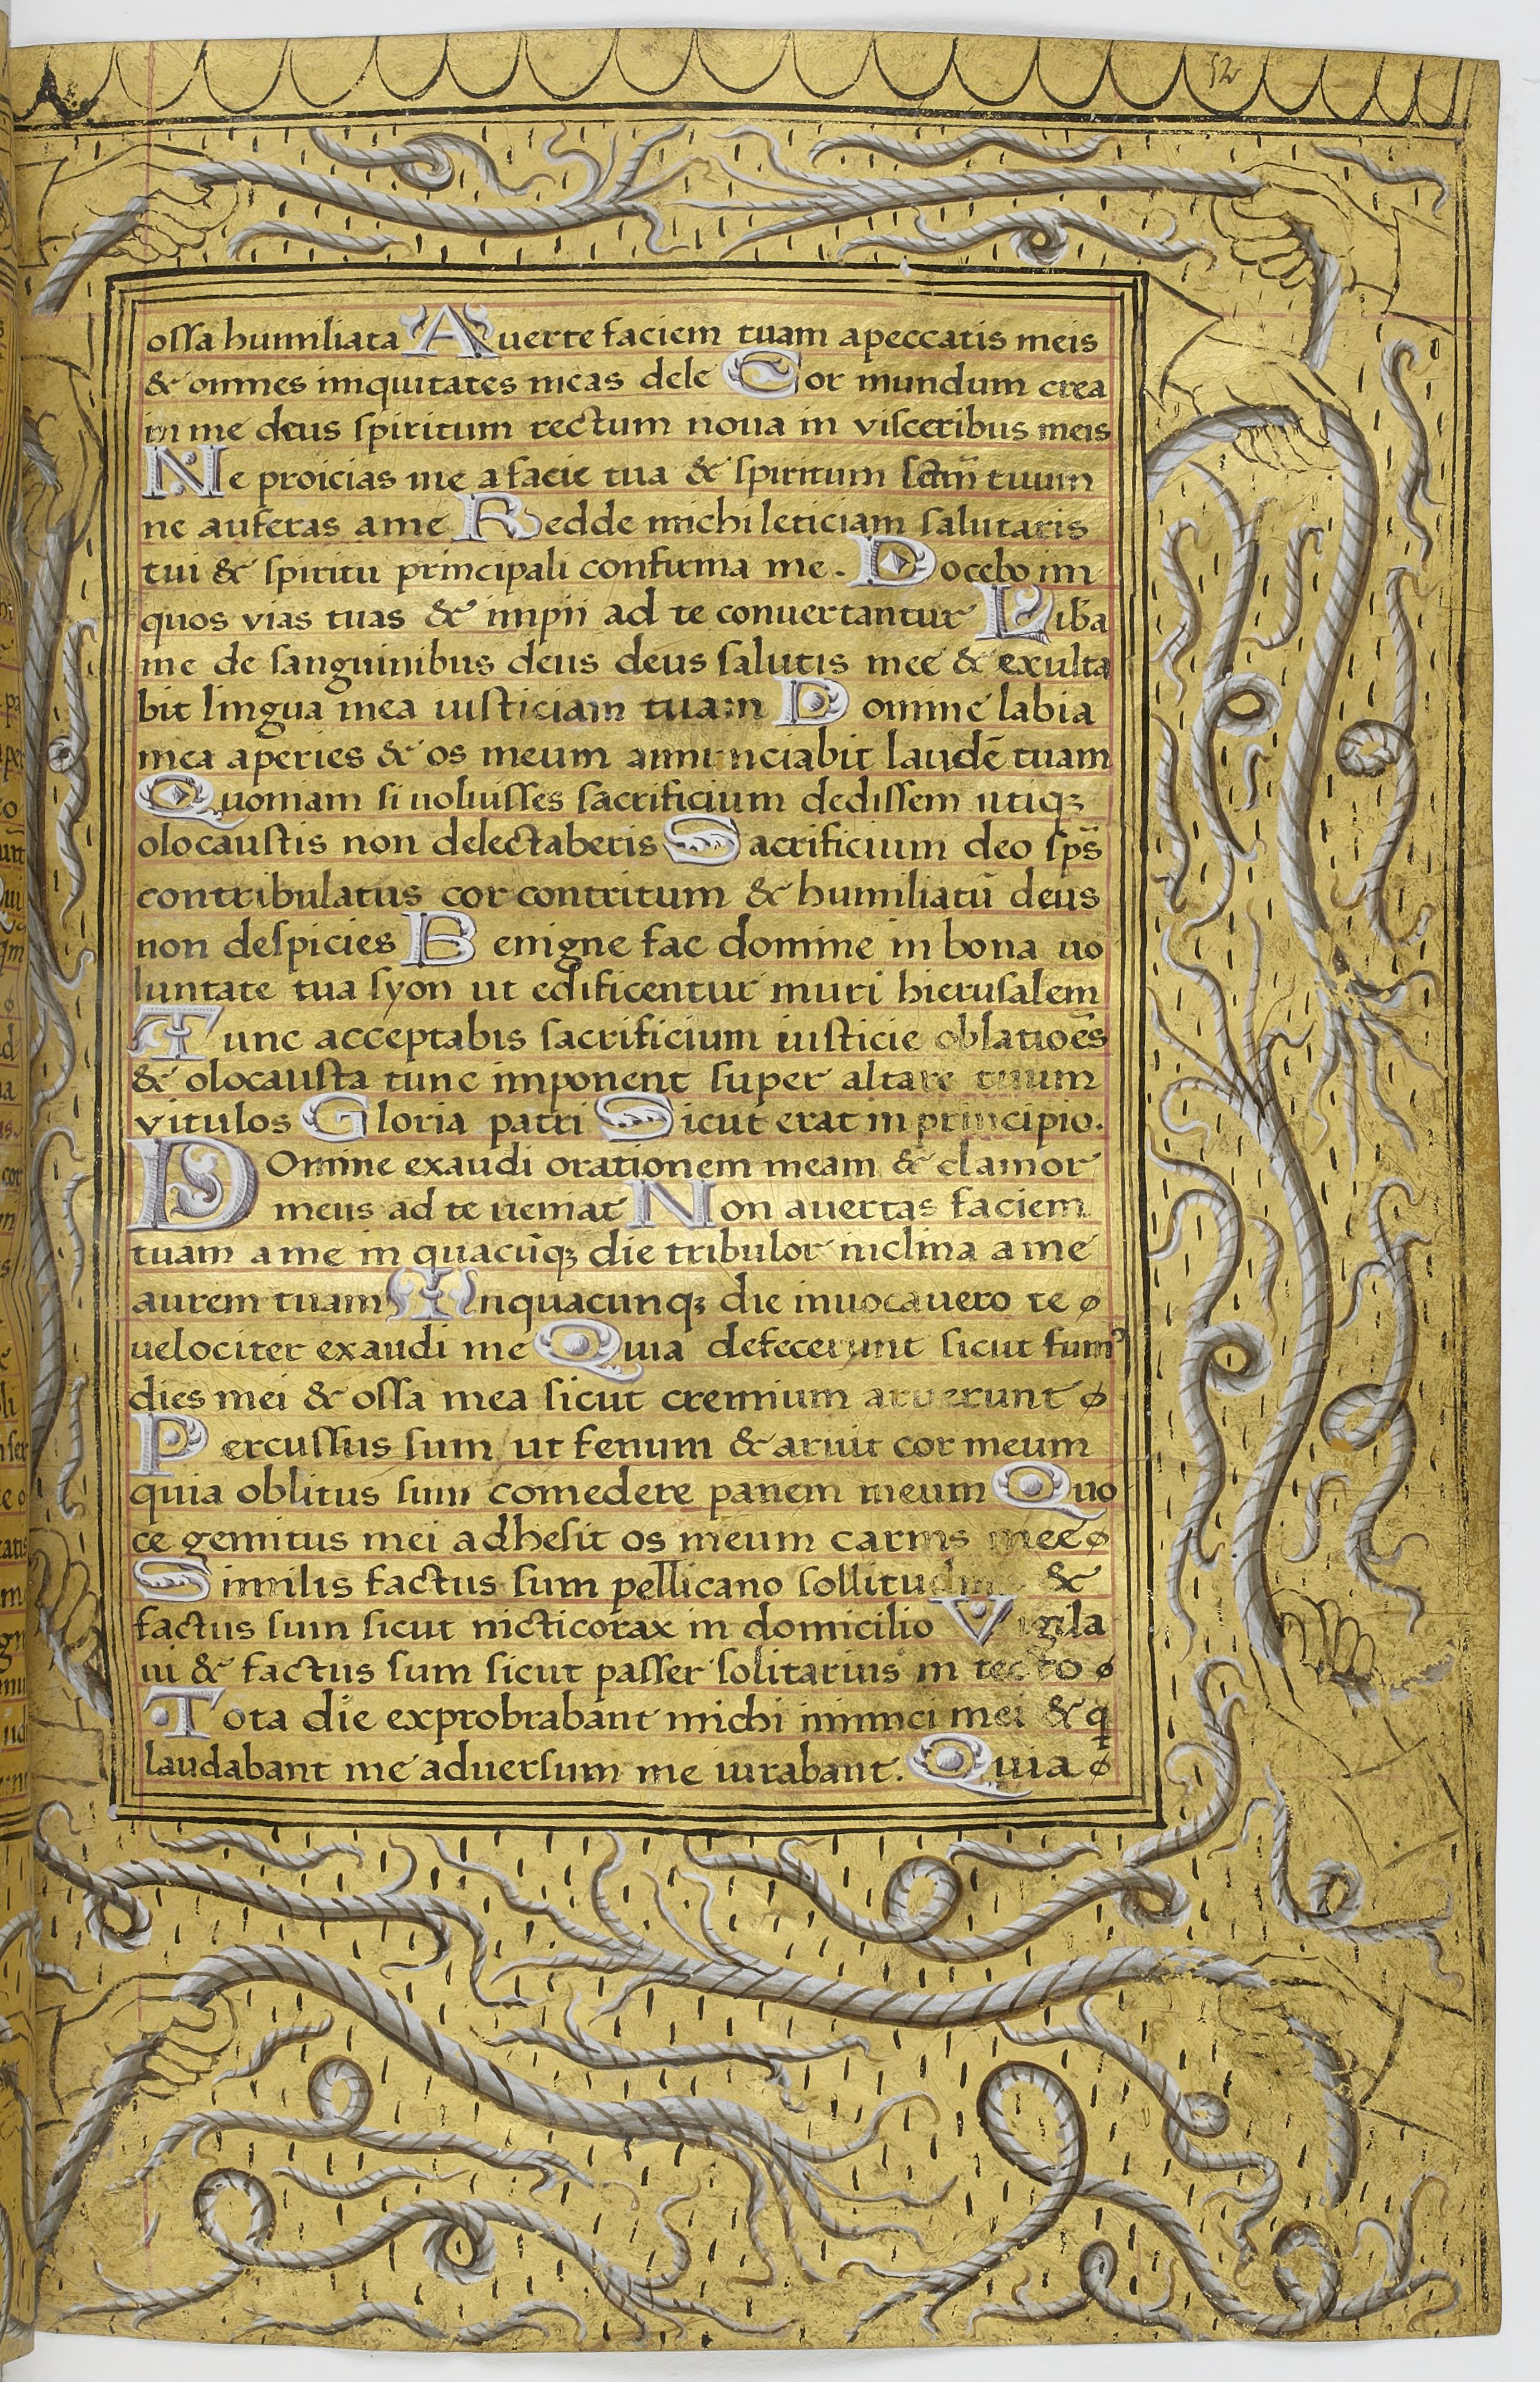 52
ossa humiliata Auerte faciem tuam apeccatis meis
& omnes iniquitates meas dele Cor mundum crea
in me deus spiritum rectum noua in visceribus meis
Ne proicias me a facie tua & spiritum sctm̄ tuum
ne auferas a me Redde michi leticiam salutaris
tui & spiritu principali confirma me. Docebo ini
quos vias tuas & impii ad te conuertantur Liba
me de sanguinibus deus deus salutis mee & exulta
bit lingua mea iusticiam tuam Domine labia
mea aperies & os meum annunciabit laudē tuam
Quoniam si uoluisses sacrificium dedissem utiqꝫ
olocaustis non delectaberis Sacrificium deo sps̄
contribulatus cor contritum & humiliatū deus
non despicies Benigne fac domine in bona uo
luntate tua syon ut edificentur muri hierusalem
Tunc acceptabis sacrificium iusticie oblatioēs
& olocausta tunc imponent super altare tuum
vitulos Gloria patri Sicut erat in principio.
DOmine exaudi orationem meam & clamor
meus ad te ueniat Non auertas faciem
tuam a me in quacūqꝫ die tribulor inclina a me
aurem tuam Inquacunqꝫ die inuocauero te
uelociter exaudi me Quia defecerunt sicut fumꝰ
dies mei & ossa mea sicut cremium aruerunt
Percussus sum ut fenum & aruit cor meum
quia oblitus sum comedere panem meum Quo
ce gemitus mei adhesit os meum carnis mee
Similis factus sum pellicano sollitudinis &
factus sum sicut nicticorax in domicilio Vigila
ui & factus sum sicut passer solitarius in tecto
Tota die exprobrabant michi inimici mei & q
laudabant me aduersum me iurabant. Quia